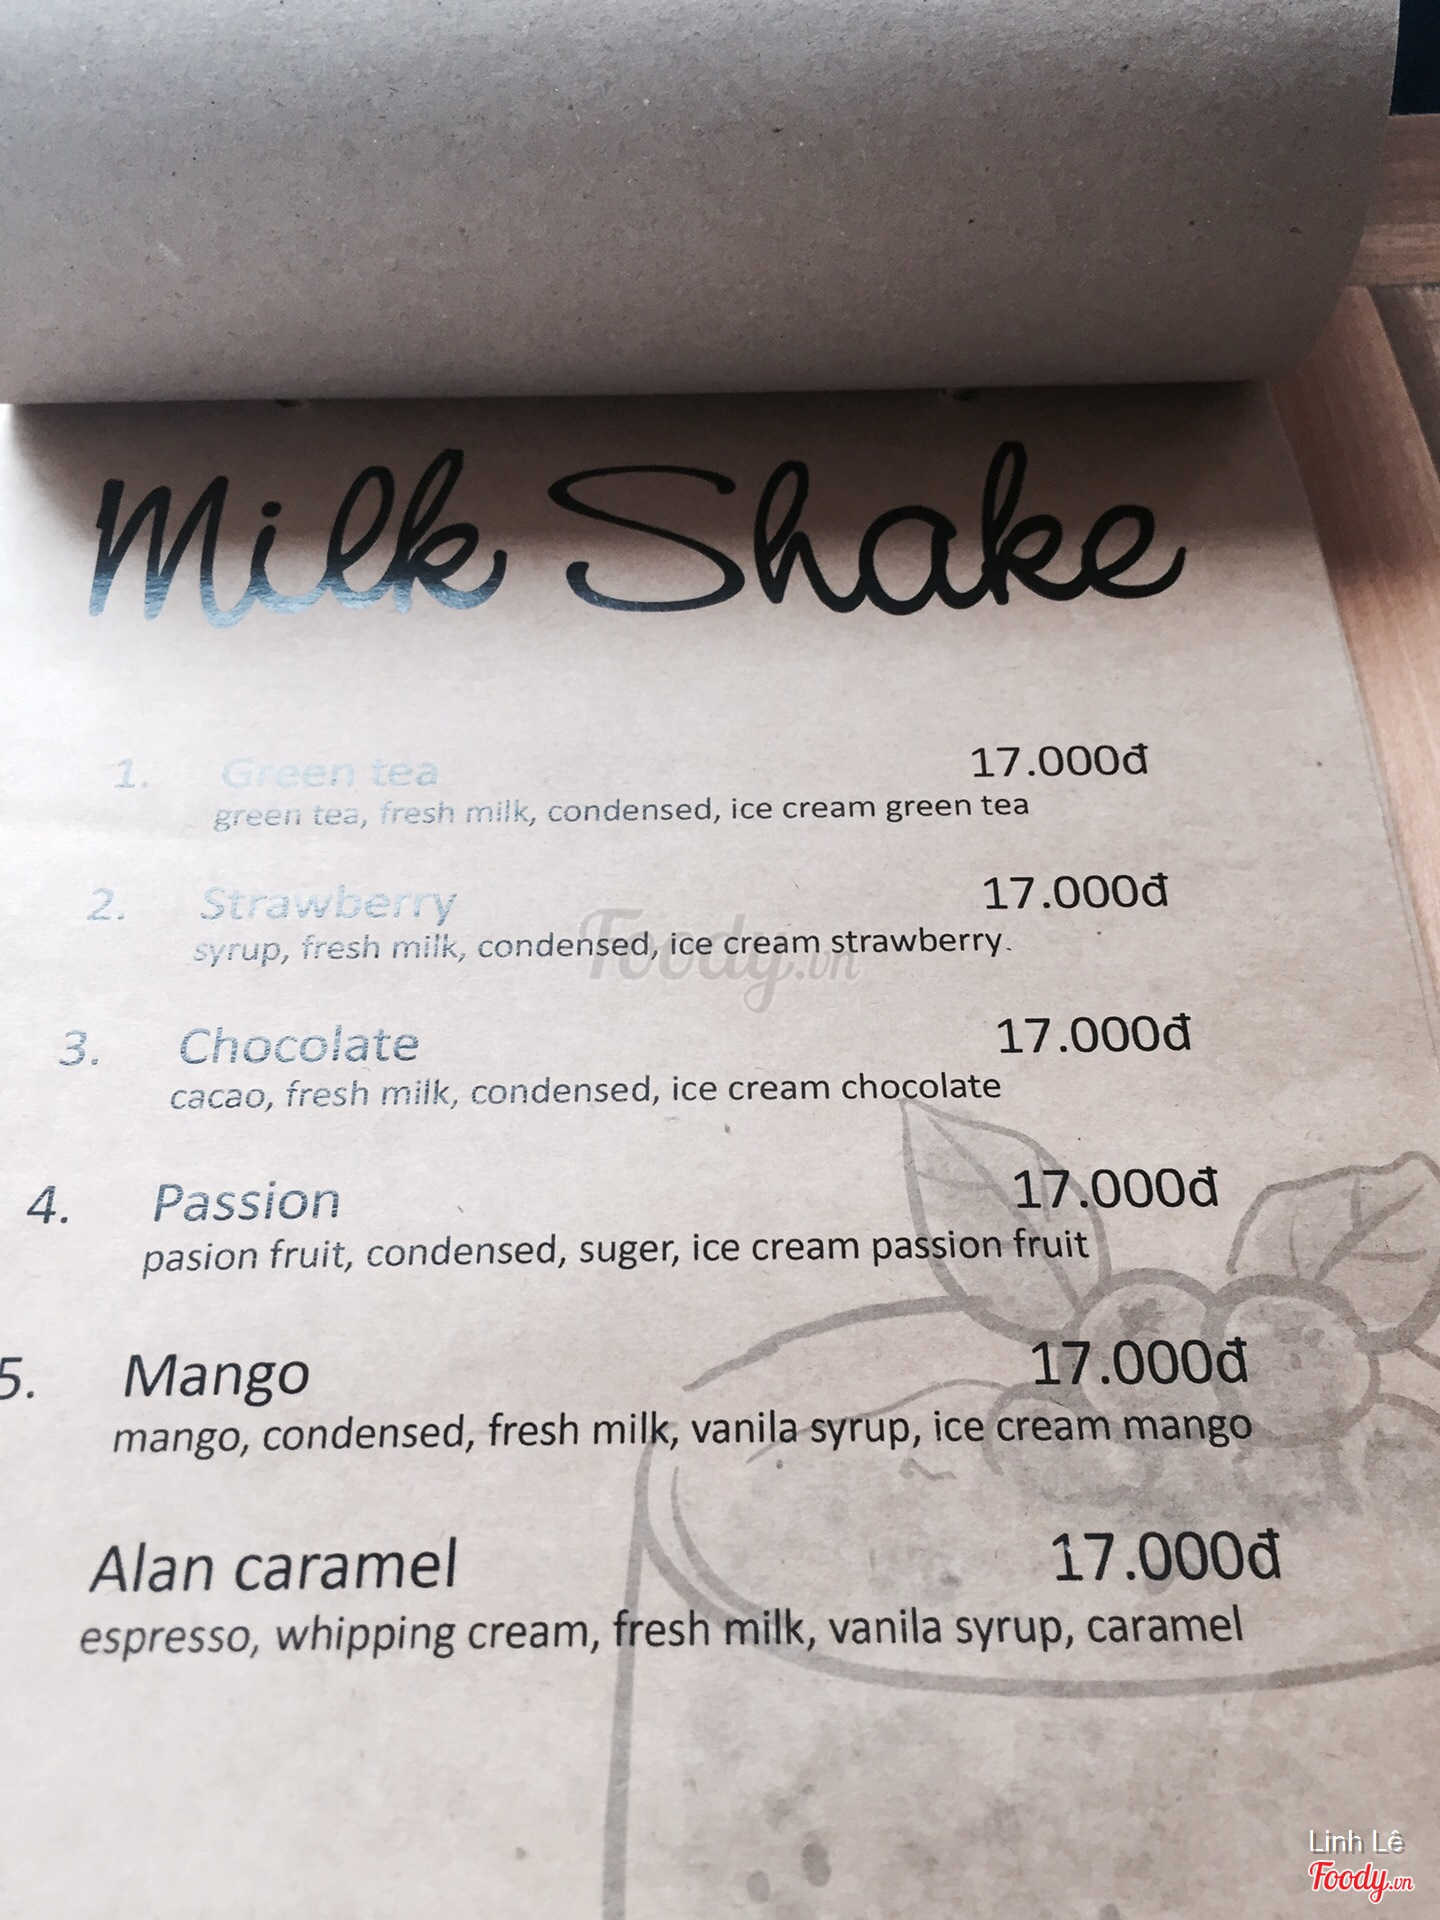 Milk Shake
1. Green tea 17.000đ
green tea, fresh milk, condensed, ice cream green tea
2. Strawberry 17.000đ
syrup, fresh milk, condensed, ice cream strawberry.
Foody.vn
3. Chocolate 17.000đ
cacao, fresh milk, condensed, ice cream chocolate
4. Passion 17.000đ
pasion fruit, condensed, suger, ice cream passion fruit
5. Mango 17.000đ
mango, condensed, fresh milk, vanila syrup, ice cream mango
Alan caramel 17.000đ
espresso, whipping cream, fresh milk, vanila syrup, caramel
Linh Lê
Foody.vn